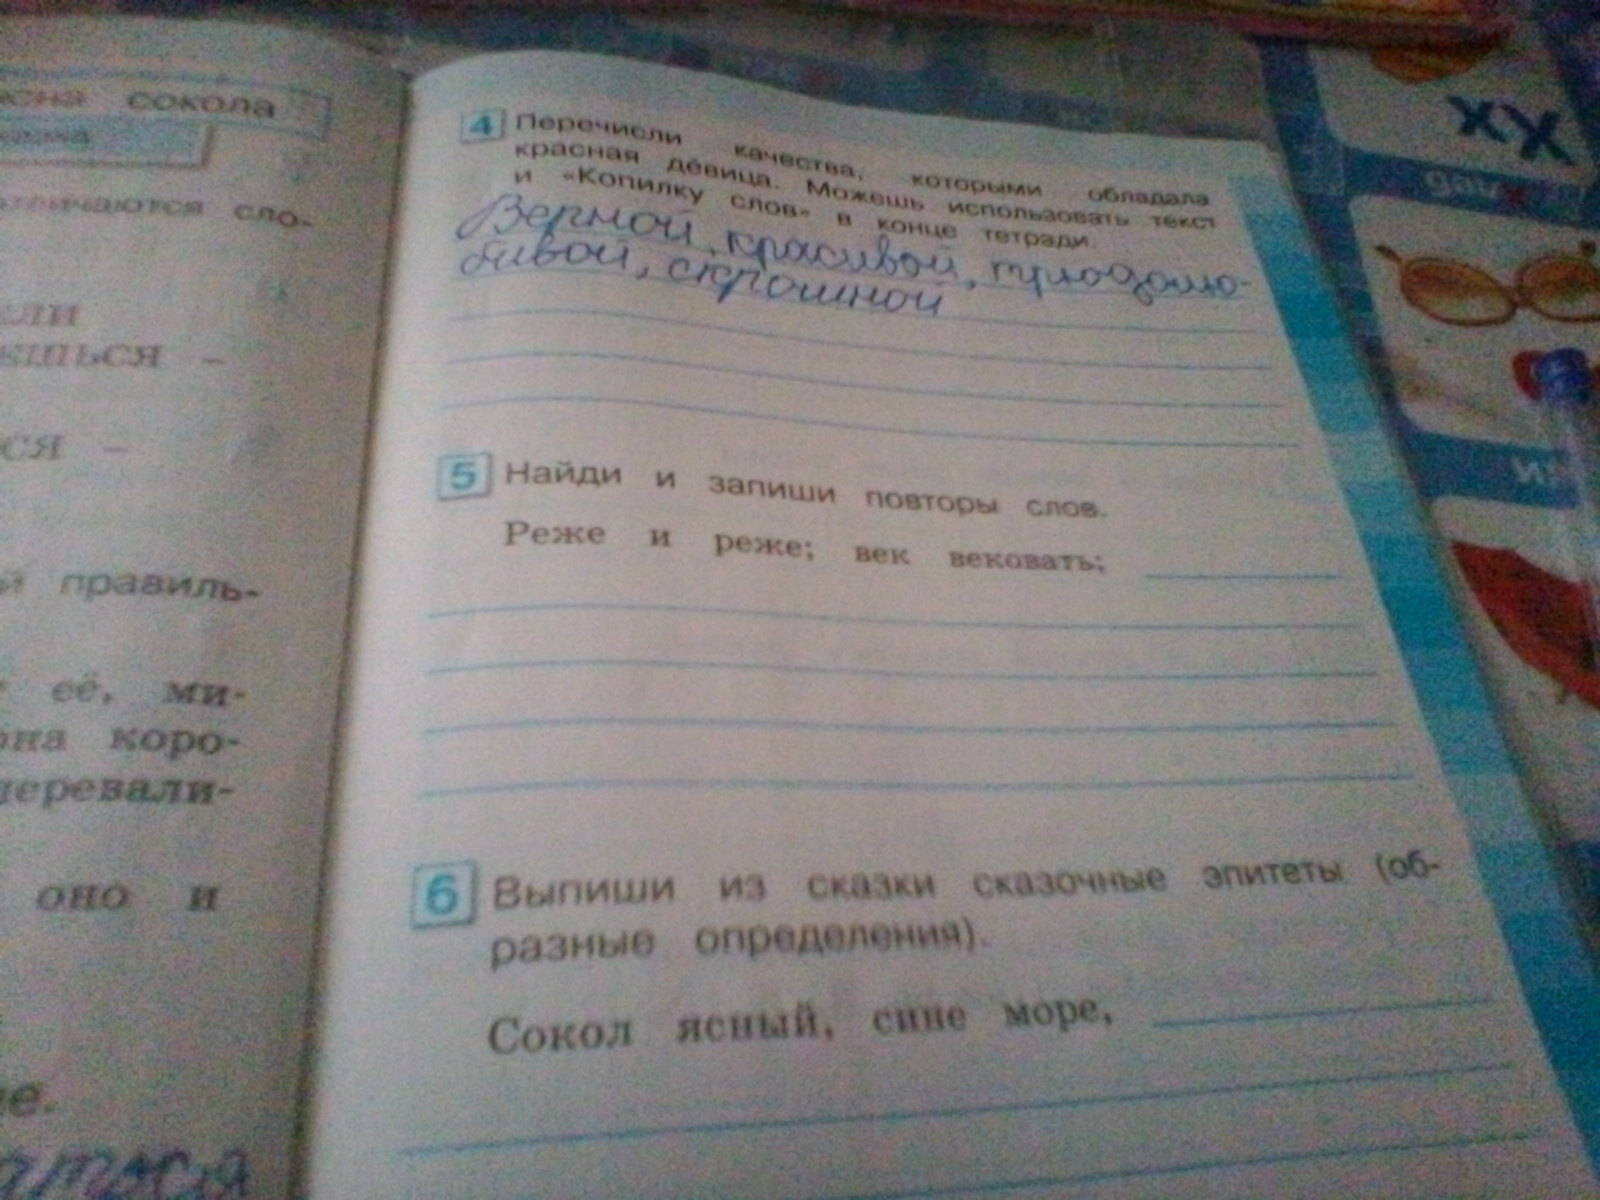 сокола
отличаются сло-
ли
ешься –
ся –
й правиль-
её, ми-
она коро-
перевали-
оно и
е.
4 Перечисли качества, которыми обладала
красная дéвица. Можешь использовать текст
и «Копилку слов» в конце тетради.
Верной, красивой, трудолю-
бивой, скромной
5 Найди и запиши повторы слов.
Реже и реже; век вековать;
6 Выпиши из сказки сказочные эпитеты (об-
разные определения).
Сокол ясный, сине море,